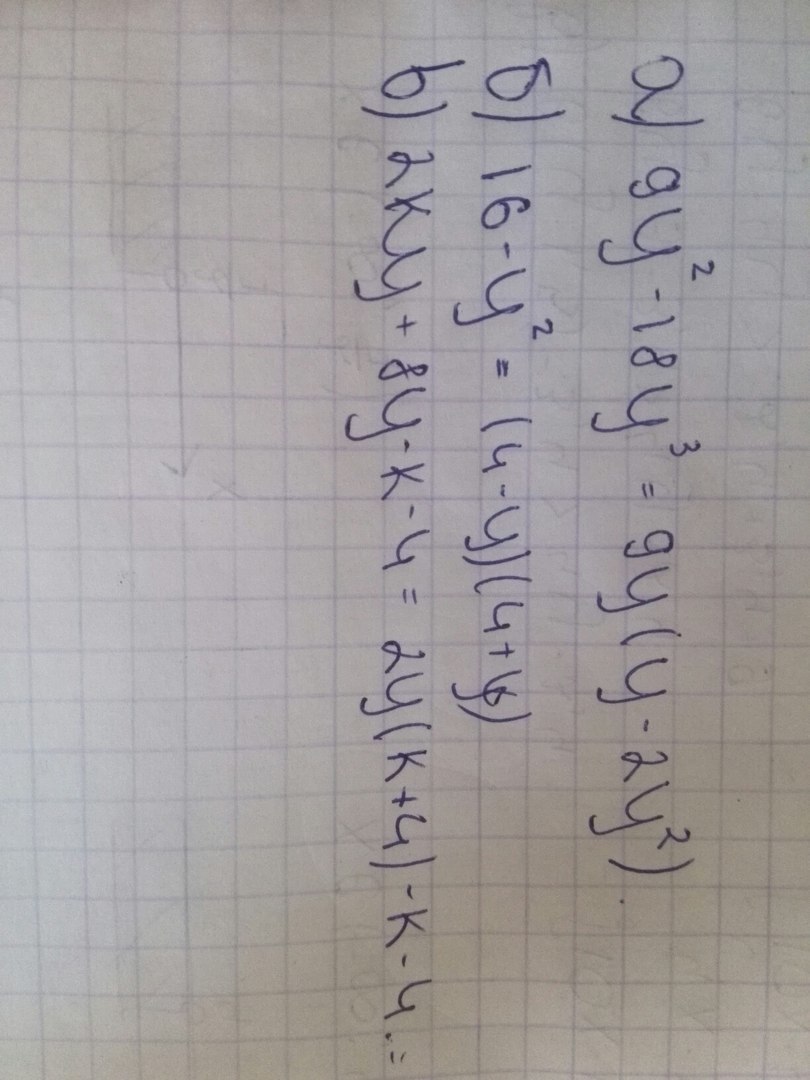 а) 9y² - 18y³ = 9y(y - 2y²)
б) 16 - y² = (4 - y)(4 + y)
в) 2ky + 8y - k - 4 = 2y(k + 4) - k - 4 =